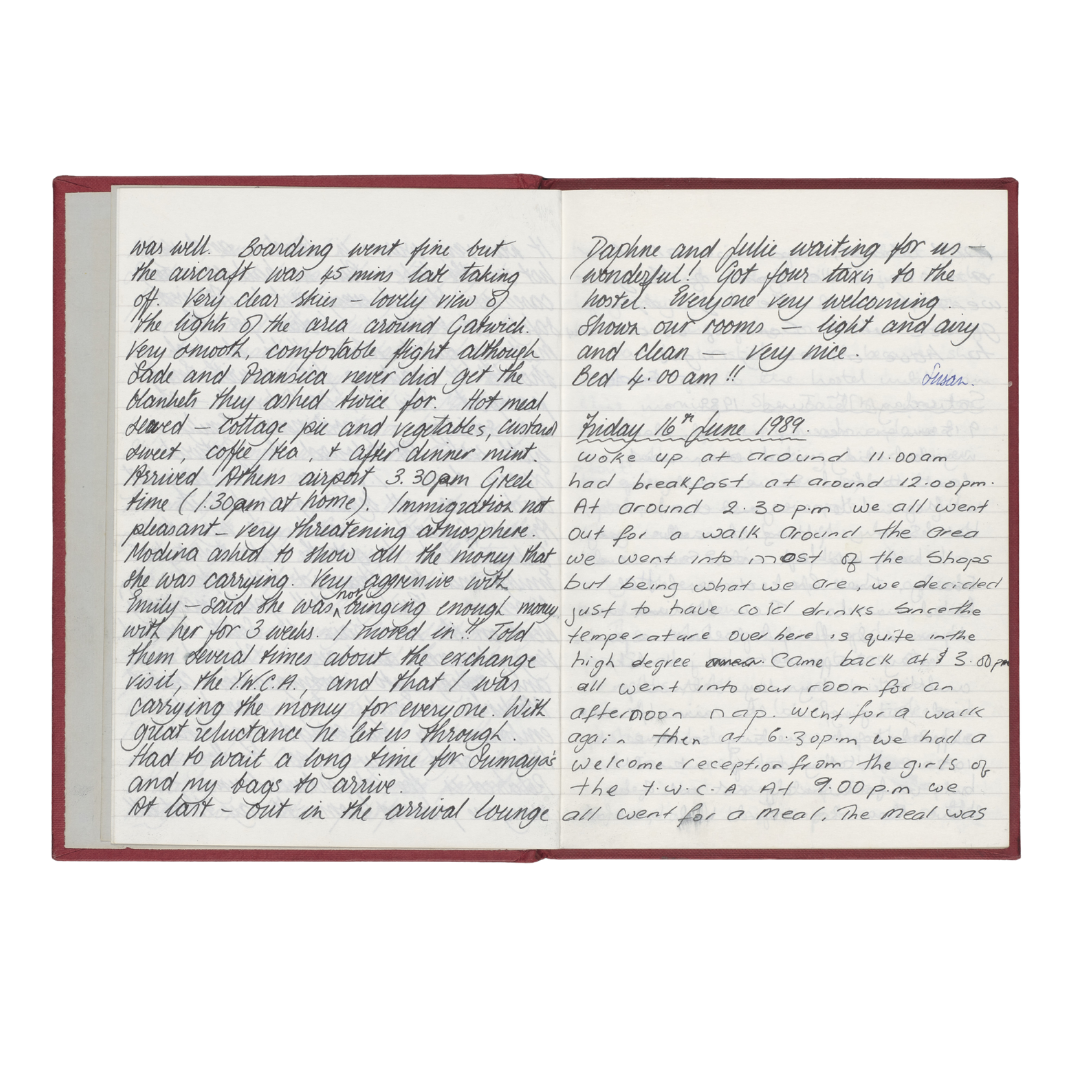 was well. Boarding went fine but
the aircraft was 45 mins late taking
off. Very clear skies – lovely view of
the lights of the area around Gatwick.
Very smooth, comfortable flight although
Sade and Pransica never did get the
blankets they asked twice for. Hot meal
served – cottage pie and vegetables, custard
sweet, coffee/tea, + after dinner mint.
Arrived Athens airport 3.30am Greek
time (1.30am at home). Immigration not
pleasant – very threatening atmosphere.
Modina asked to show all the money that
she was carrying. Very aggressive with
Emily – said she was not bringing enough money
with her for 3 weeks. I moved in!! Told
them several times about the exchange
visit, the Y.W.C.A., and that I was
carrying the money for everyone. With
great reluctance he let us through.
Had to wait a long time for Sumaya's
and my bags to arrive.
At last – out in the arrival lounge
Daphne and Julie waiting for us –
wonderful! Got four taxis to the
hostel. Everyone very welcoming.
Shown our rooms – light and airy
and clean – very nice.
Bed 4.00am!! Susan.
Friday 16th June 1989.
woke up at around 11.00am
had breakfast at around 12.00pm.
At around 2.30p.m we all went
out for a walk around the area
we went into most of the Shops
but being what we are, we decided
just to have cold drinks Since the
temperature over here is quite in the
high degree Came back at 3.00pm
all went into our room for an
afternoon nap. went for a walk
again then at 6.30p.m we had a
welcome reception from the girls of
the Y.W.C.A. At 9.00p.m we
all went for a meal. The meal was